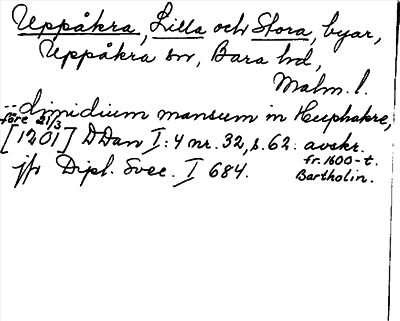 Uppåkra, Lilla och Stora, byar,
Uppåkra sn, Bara hd,
Malm. l.
-- dimidium mansum in Heuphakre,
före 21/3
[1201] DDan I:4 nr. 32, s. 62. avskr.
fr. 1600-t.
jfr Dipl. Svec. I 684.
Bartholin.